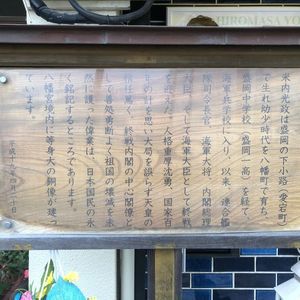 HIROMASA YO
米内光政は盛岡の下小路(愛宕町)
で生れ幼少時代を八幡町で育ち、
盛岡中学校(盛岡一高)を経て、
海軍兵学校に入り、以来、連合艦
隊司令長官、海軍大将、内閣総理
大臣、そして海軍大臣として終戦
を迎えた。人格重厚沈勇、国家百
年の計を思い大局を誤らず天皇の
信任篤く、終戦内閣の中心閣僚と
して善処勇断よく祖国の壊滅を未
然に護った偉業は、日本国民の永
く銘記するところであります。
八幡宮境内に等身大の銅像が建っ
ています。
平成十六年四月二十日